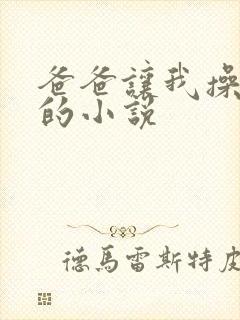 爸爸讓我操
的小説
德馬雷斯特皮